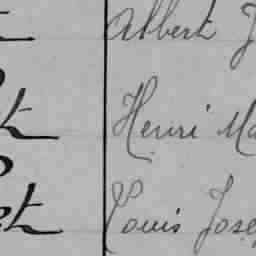 Albert J
Henri Ma
Louis Jose